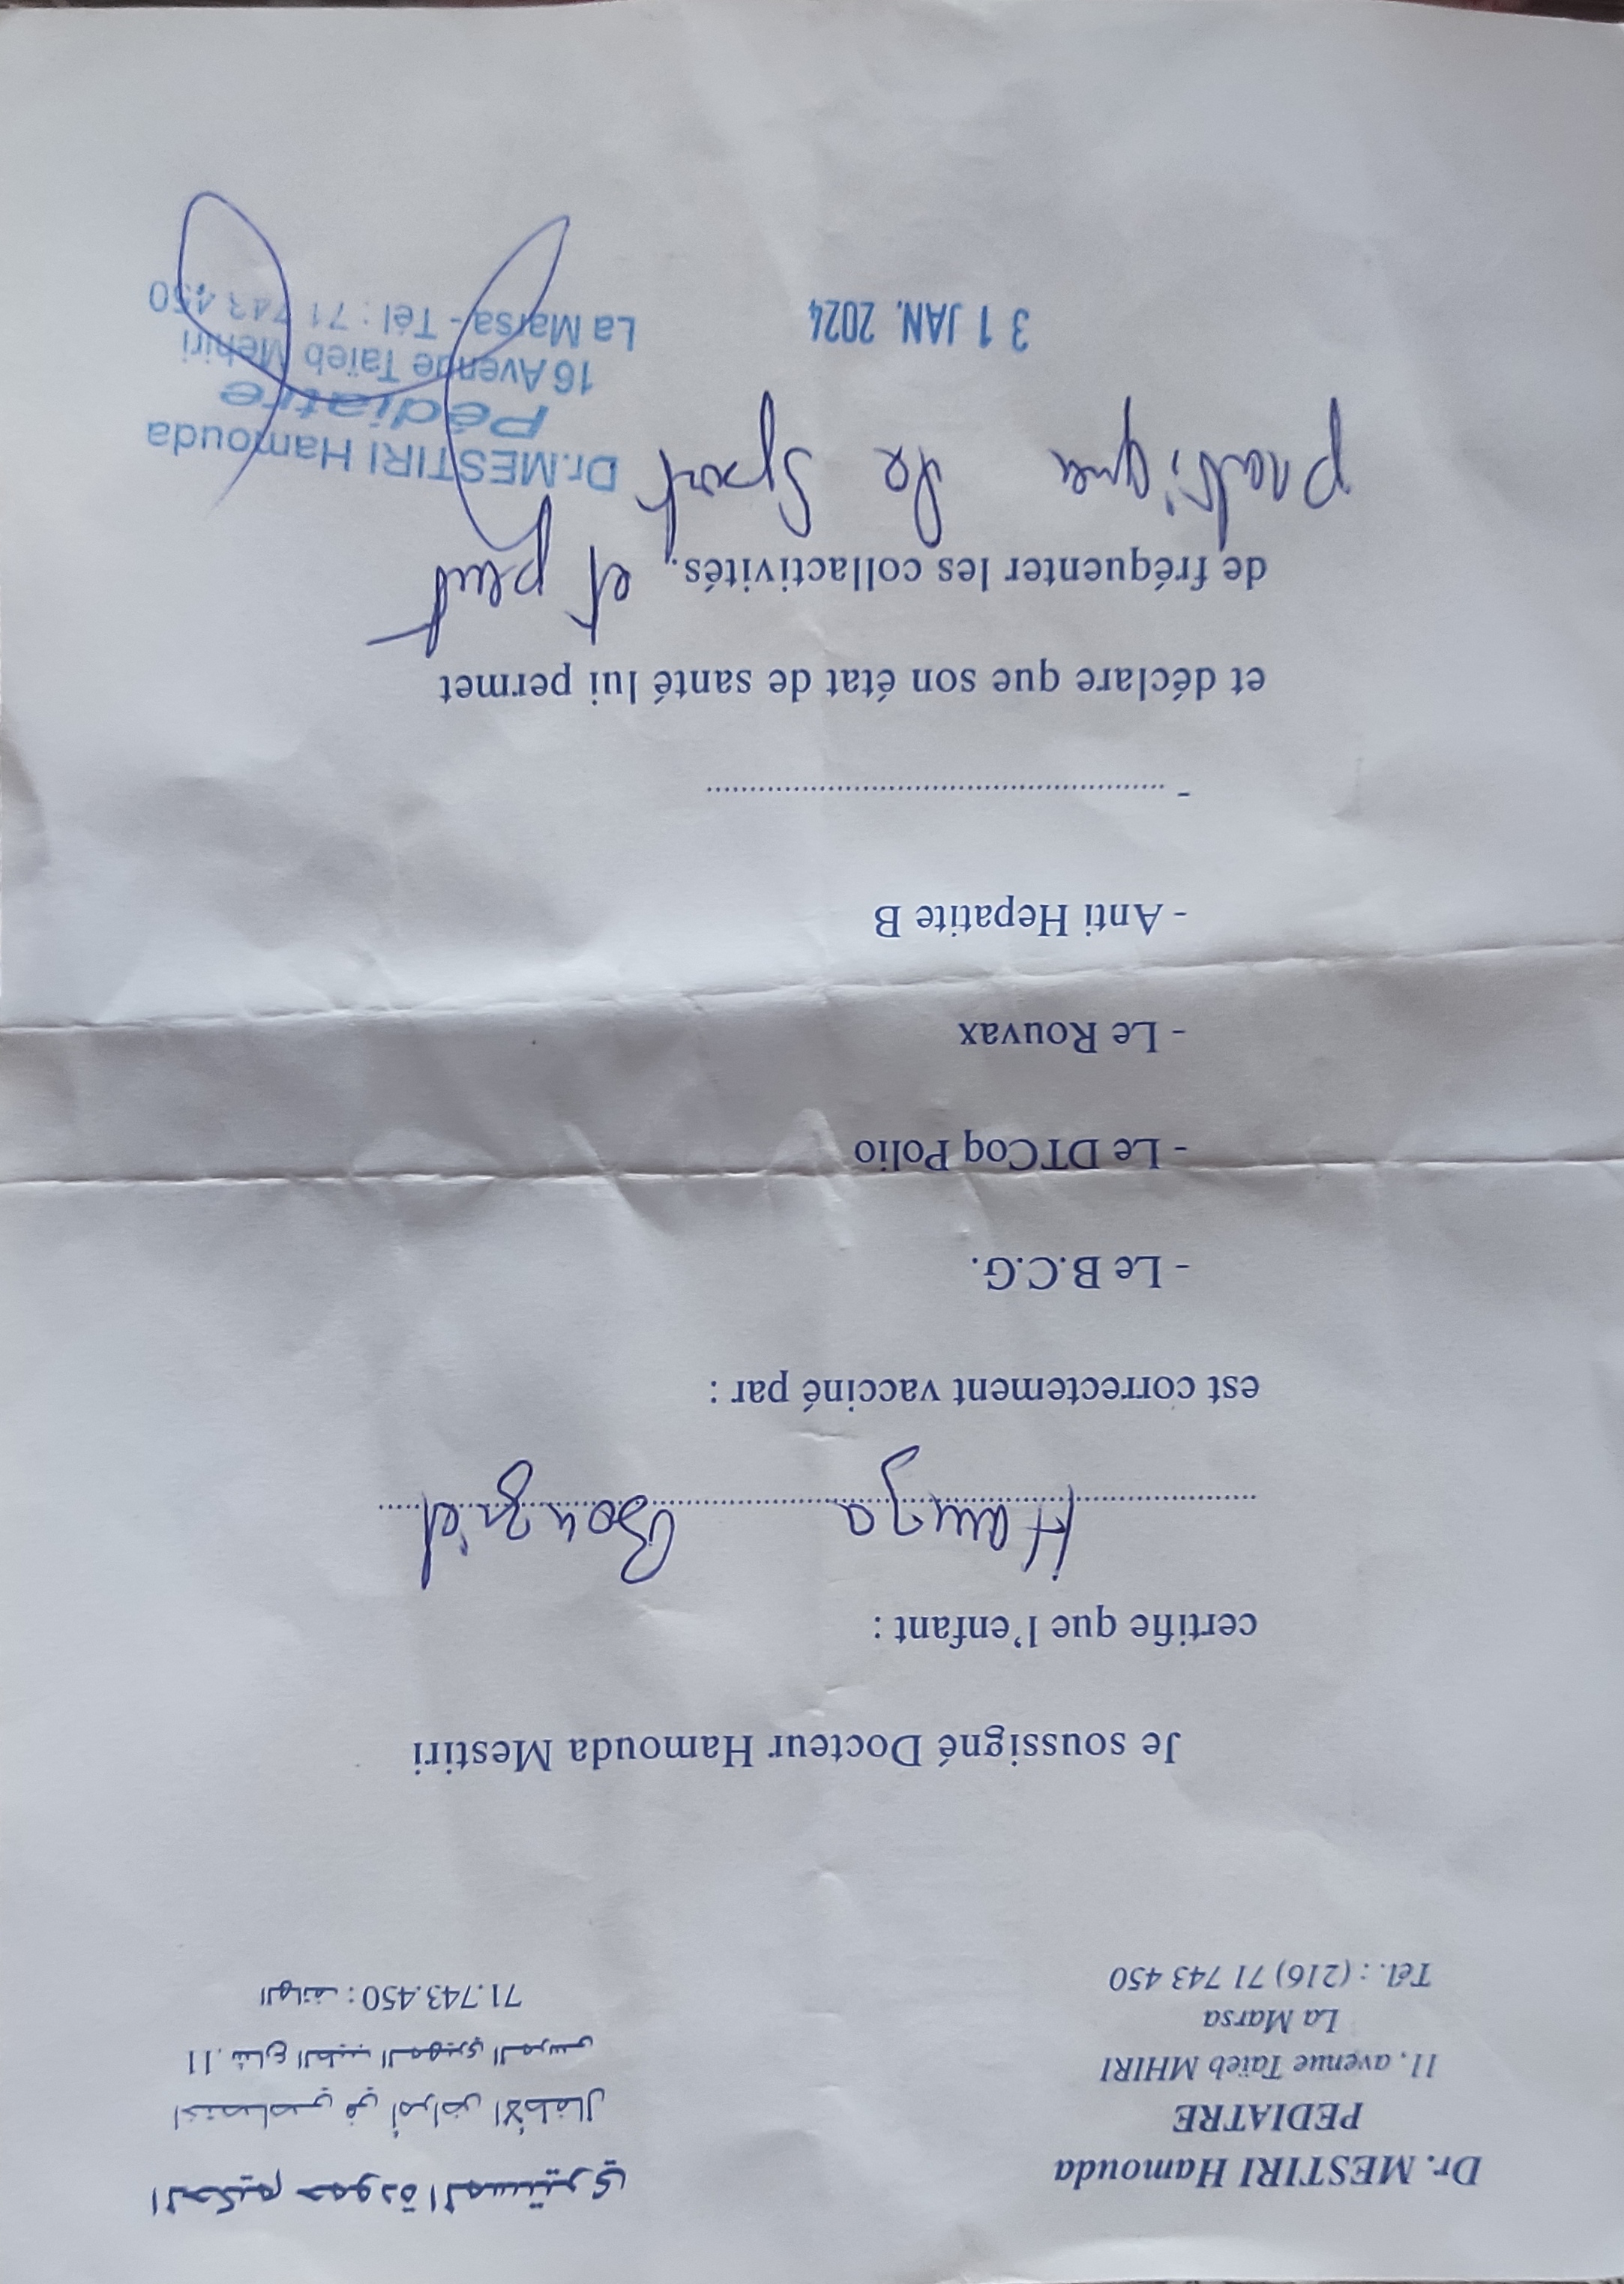 Dr. MESTIRI Hamouda
PEDIATRE
11, avenue Taïeb MHIRI
La Marsa
Tél. : (216) 71 743 450
الحكيم حمودة المستيري
اختصاصي في أمراض الأطفال
11، شارع الطيب المهيري المرسى
الهاتف : 71.743.450
Je soussigné Docteur Hamouda Mestiri
certifie que l'enfant :
Hamza Bouzriel
est correctement vacciné par :
- Le B.C.G.
- Le DTCoq Polio
- Le Rouvax
- Anti Hepatite B
-
et déclare que son état de santé lui permet
de fréquenter les collactivités. et peut
pratiquer le Sport
31 JAN. 2024
Dr.MESTIRI Hamouda
Pédiatre
16 Avenue Taïeb Mehiri
La Marsa - Tél : 71 743 450